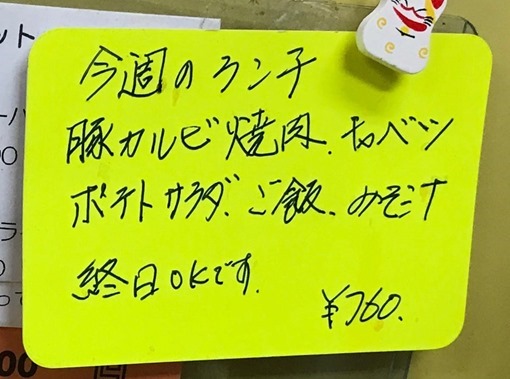 今週のランチ
豚カルビ焼肉、キャベツ
ポテトサラダ、ご飯、みそ汁
終日OKです。
¥760.
ット
00